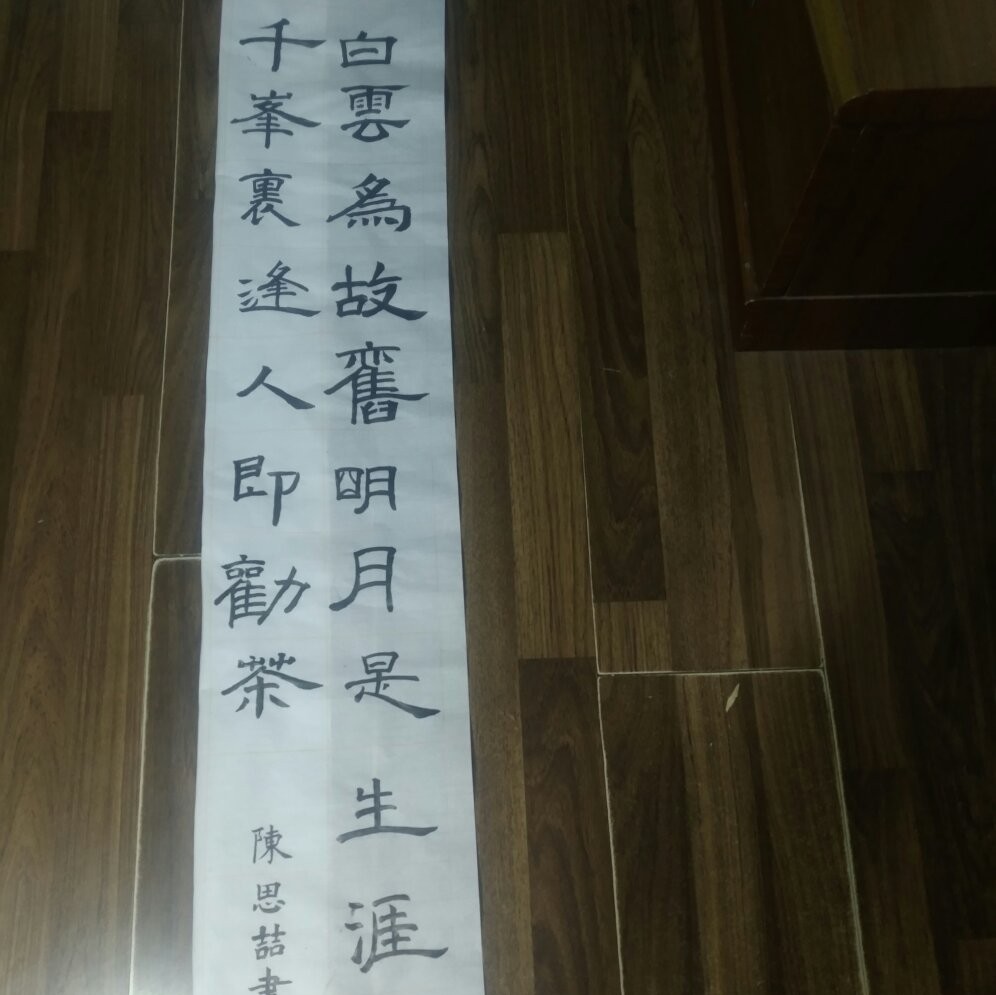 白雲為故舊明月是生涯
千峯裏逢人即勸茶
陳思喆書